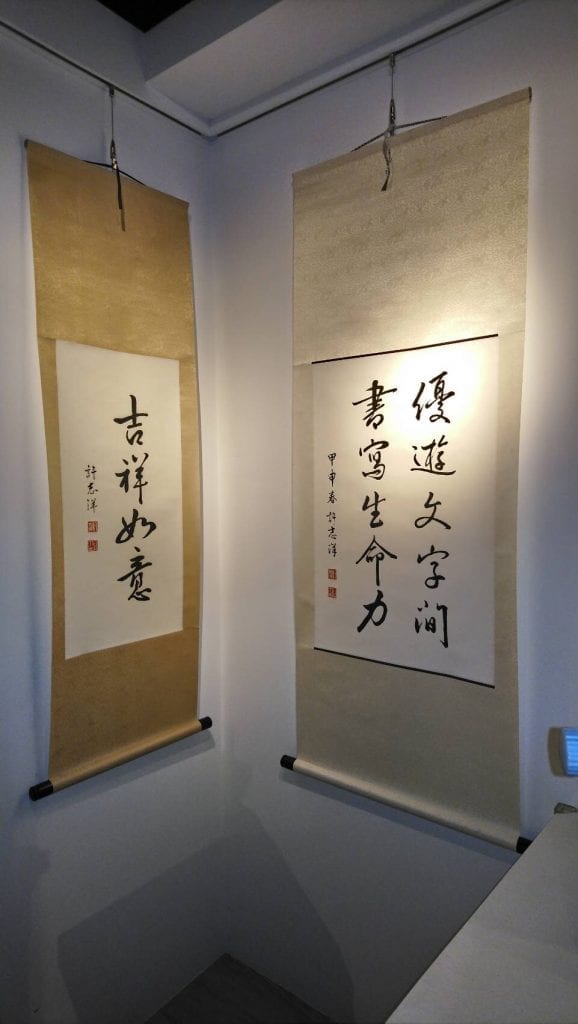 優遊文字間
書寫生命力
甲申春 許志洋
吉祥如意
許志洋